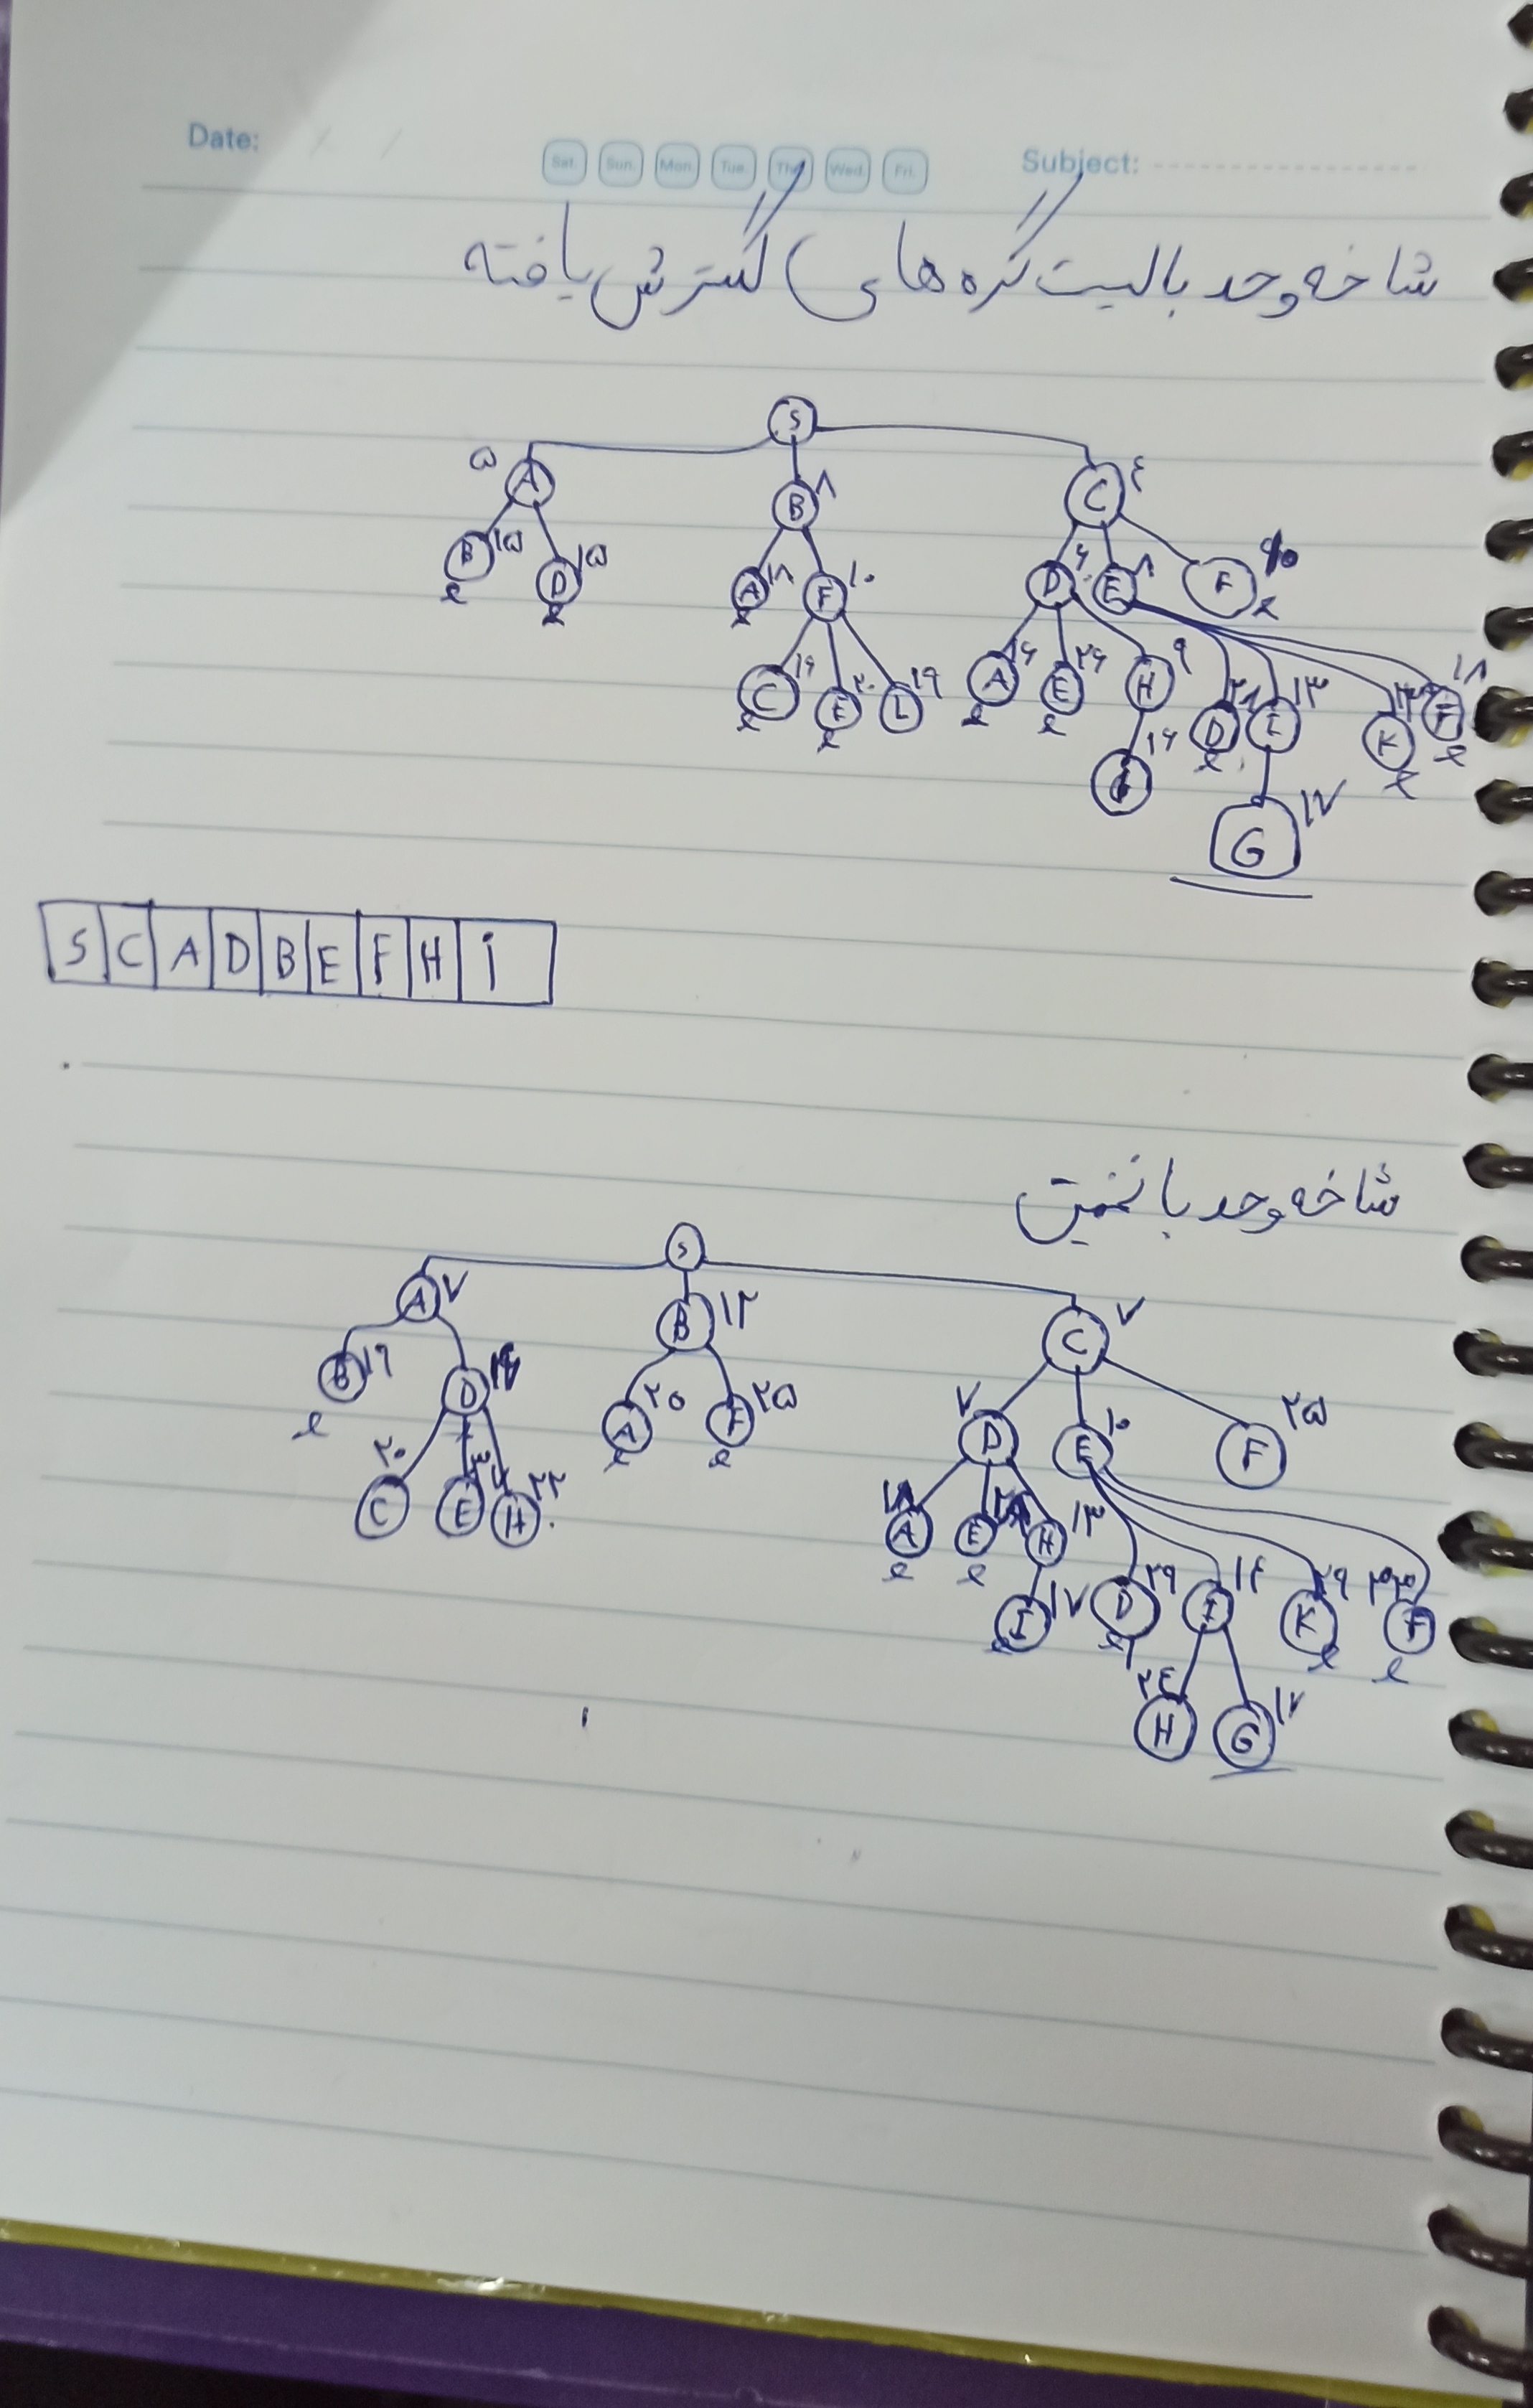 Date: / /
Sat. Sun. Mon. Tue. Thu. Wed. Fri.
Subject:
شاخه وحد با لیست گره های گسترش یافته
S
۵ A B ۸ C ٤
B ۱۵ D ۱۵ A ۱۸ F ۱۰ D ۶ E ۸ F
C ۱۶ E ۲۰ L ۱۹ A ۱۶ E ۲۶ H ۹ D ۲۸ I ۱۳ K F ۱۸
۱۶ G ۱۷
S C A D B E F H i
شاخه وحد با تخمین
S
A ۷ B ۱۲ C ۷
B ۱۹ D A ۲۰ F ۲۵ ۷ D E ۱۰ F ۲۵
۲۰ C E H ۲۲ ۱۸ A E H ۱۳
I ۱۷ D ۲۹ I ۱٤ K ۲۹ F
۲٤ H G ۱۷